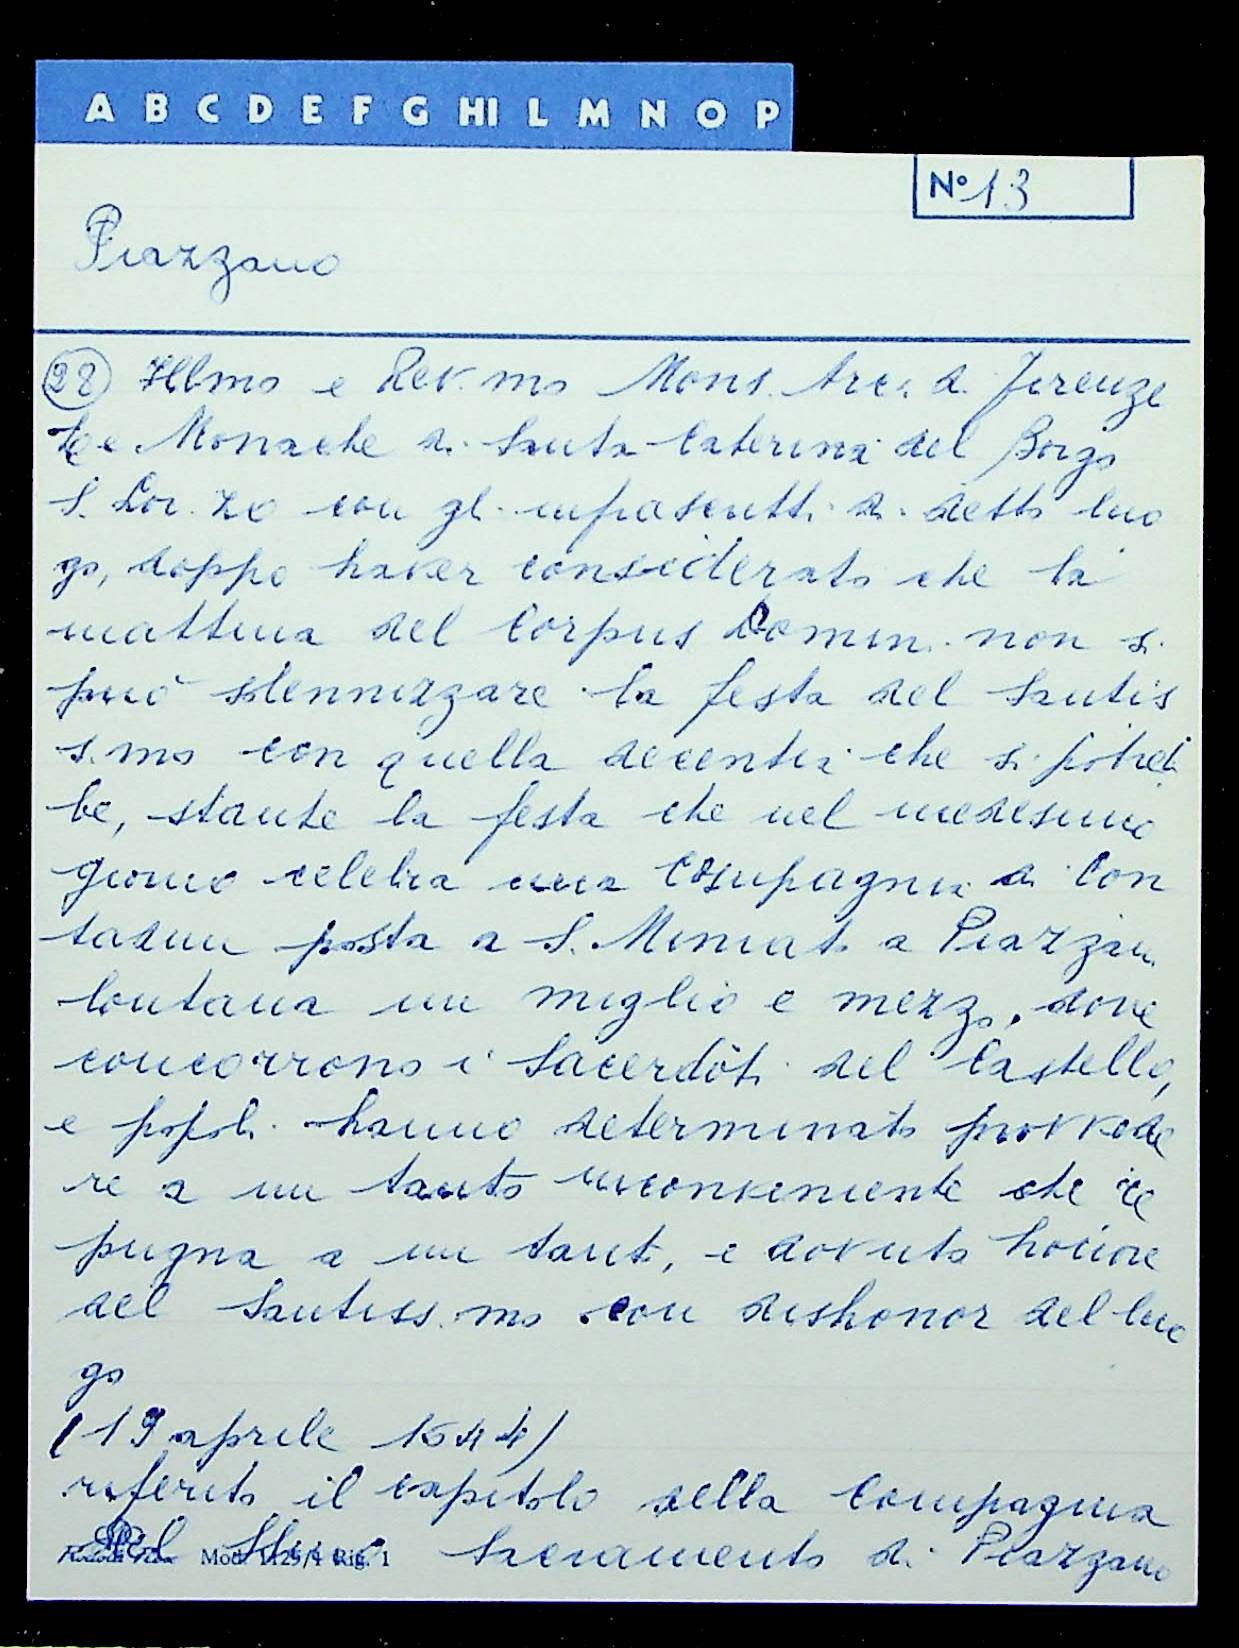 A B C D E F G HI L M N O P
N° 13
Piazzano
28 Ill.mo e Rev.mo Mons. Arc. di Firenze
Le Monache di Santa Caterina del Borgo
S. Lor.zo con gl'infrascritti di detto luo
go, doppo haver considerato che la
mattina del Corpus Domini non si
può solennizzare la festa del Santis
simo con quella decentia che si potreb
be, stante la festa che nel medesimo
giorno celebra una Compagnia di Con
tadini posta a S. Miniato a Piazzano
lontana un miglio e mezzo, dove
concorrono i Sacerdoti del Castello,
e popoli hanno determinato provvede
re a un tanto inconveniente che re
pugna a un tanto, e dovuto honore
del Santiss.mo con dishonor del luo
go
(19 aprile 1644)
riferito il capitolo della Compagnia
del Sacramento di Piazzano
Mod. 1125/4 Rig. 1